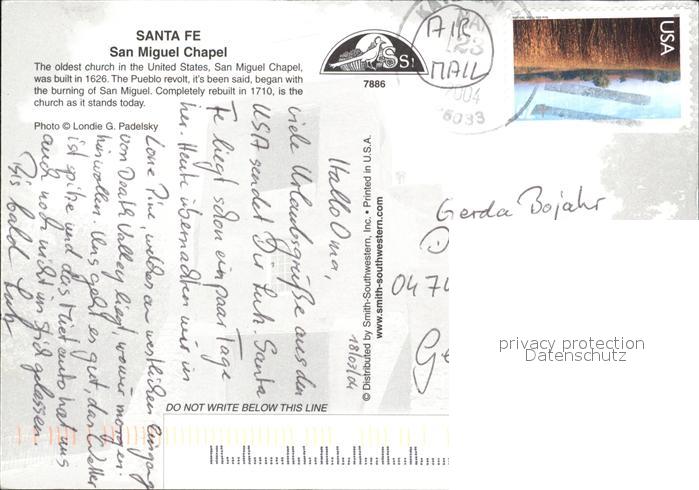 SANTA FE
San Miguel Chapel
The oldest church in the United States, San Miguel Chapel,
was built in 1626. The Pueblo revolt, it's been said, began with
the burning of San Miguel. Completely rebuilt in 1710, is the
church as it stands today.
Photo © Londie G. Padelsky
7886
AIR
MAIL
2004
USA
Hallo Oma,
viele Urlaubsgrüße aus den
USA sendet Dir Lutz. Santa
Fe liegt schon ein paar Tage
her. Heute übernachten wir in
Lone Pine, welches am westlichen Eingang
von Death Valley liegt, wo wir morgen
hinwollen. Uns geht es gut, das Wetter
ist spitze und das Mietauto hat uns
auch noch nicht im Stich gelassen.
Bis bald Lutz
18/03/04
© Distributed by Smith-Southwestern, Inc. • Printed in U.S.A.
www.smith-southwestern.com
Gerda Bojahr
D
047
Ge
privacy protection
Datenschutz
DO NOT WRITE BELOW THIS LINE